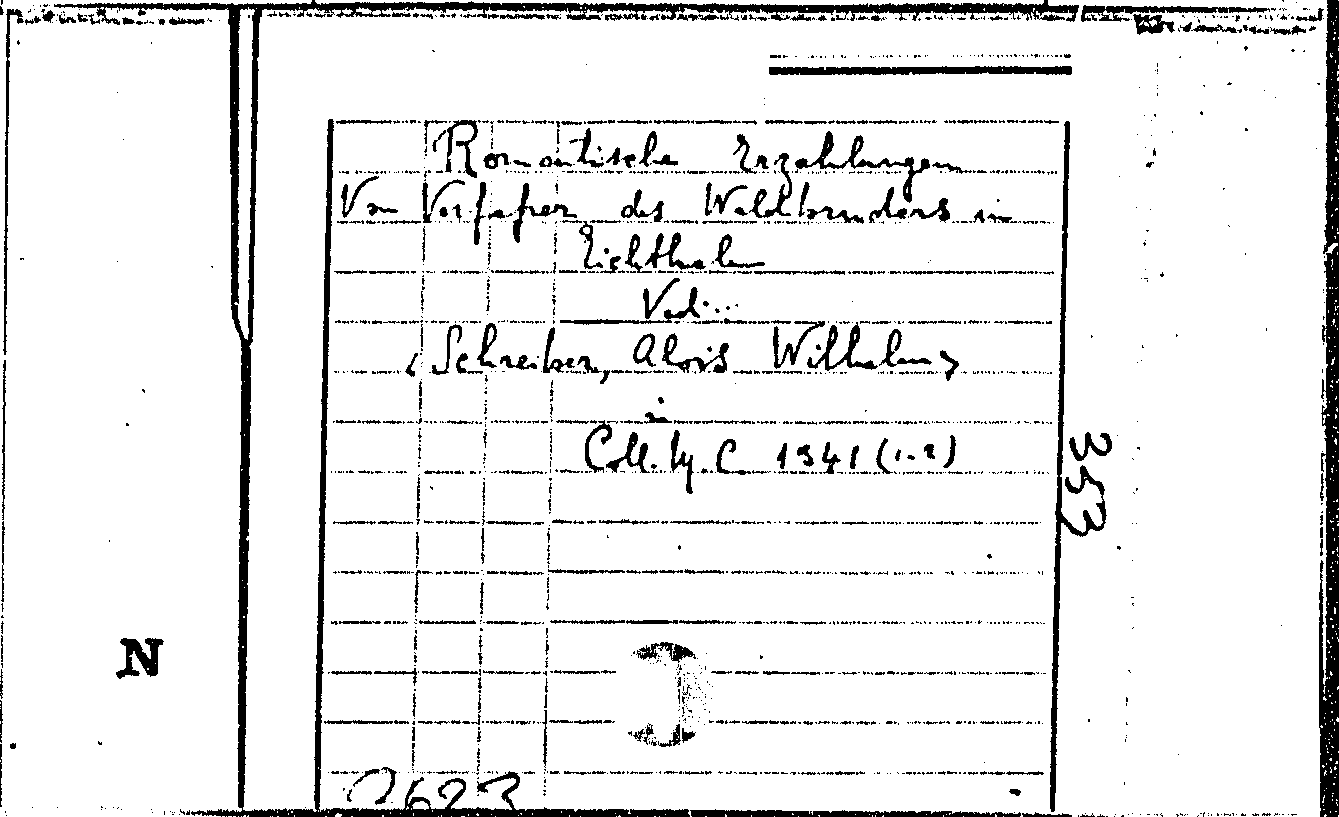 Romantische Erzahlungen
Von Verfasser des Waldbruders in
Eichthale
Vad...
<Schreiber, Alois Wilhelm>
in
Coll. hg. C. 1341 (1-2)
353
N
2623